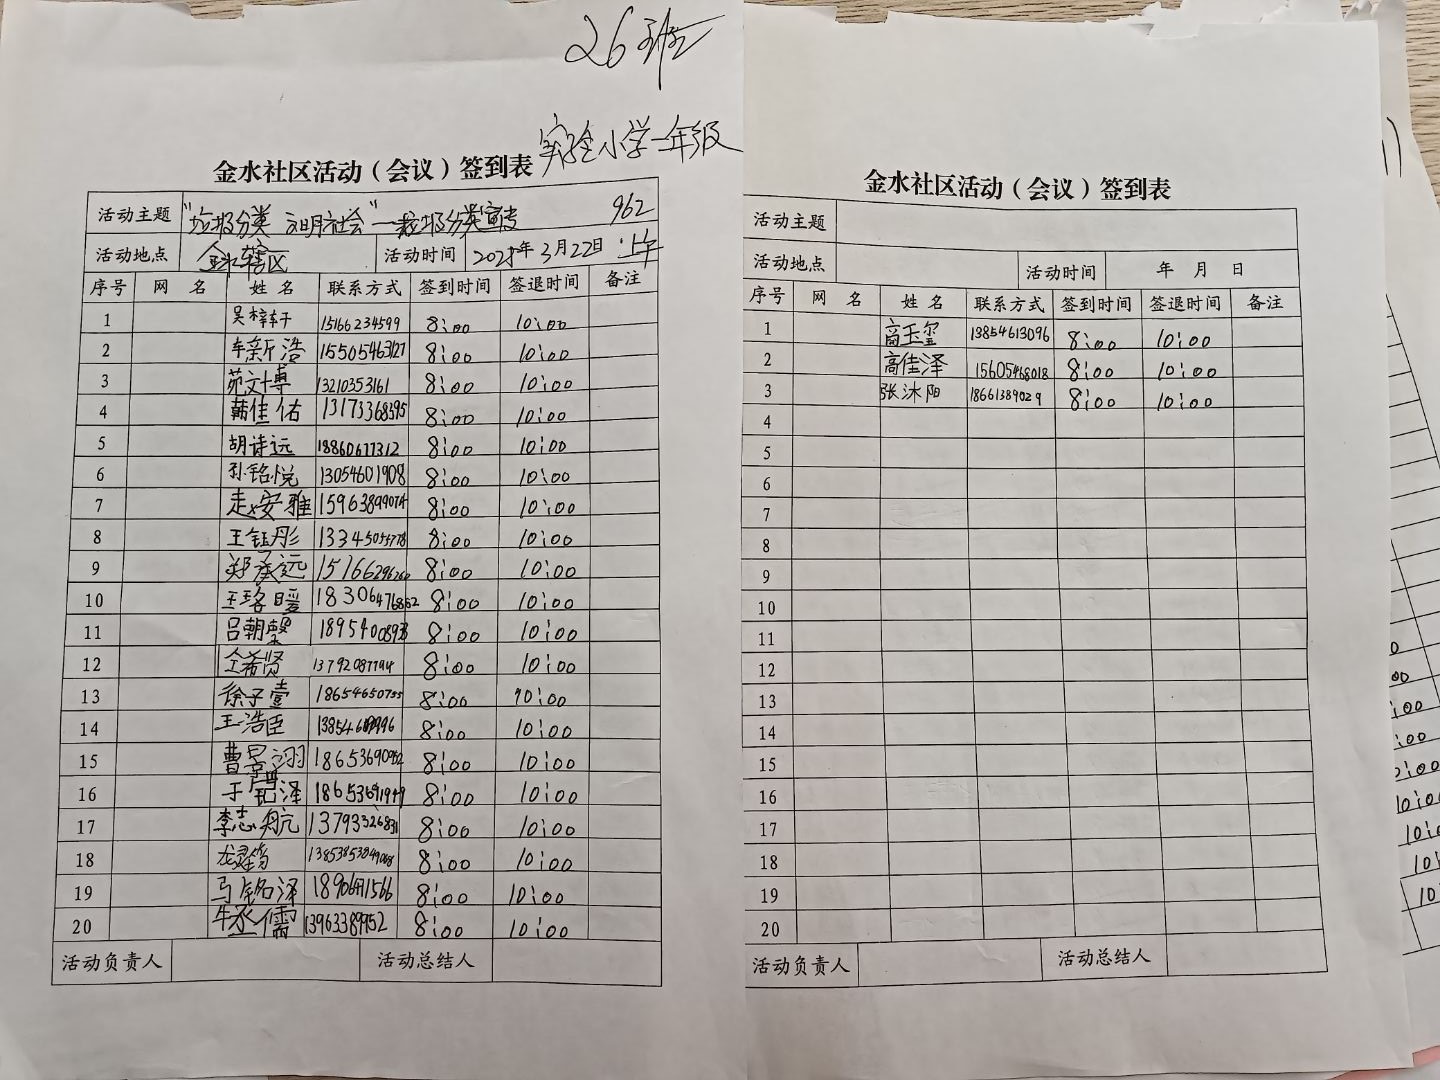 26班
实验小学一年级
金水社区活动（会议）签到表
活动主题 "垃圾分类 文明社会"一垃圾分类宣传 962
活动地点 金水辖区 活动时间 2025年3月22日 上午
序号 网 名 姓 名 联系方式 签到时间 签退时间 备注
1 吴梓轩 15166234599 8:00 10:00
2 车新浩 15505463127 8:00 10:00
3 苑文博 13210353161 8:00 10:00
4 韩佳佑 13173368395 8:00 10:00
5 胡诗远 18860677312 8:00 10:00
6 孙铭悦 13054601908 8:00 10:00
7 赵安雅 15963899074 8:00 10:00
8 王钰彤 13345055778 8:00 10:00
9 郑承远 15166296260 8:00 10:00
10 王珞暖 18306476852 8:00 10:00
11 吕朝 8:00 10:00
12 仝希贤 13792087794 8:00 10:00
13 徐子壹 18654650755 8:00 10:00
14 王浩臣 8:00 10:00
15 曹景羽 8:00 10:00
16 于 泽 8:00 10:00
17 李志航 13793326831 8:00 10:00
18 8:00 10:00
19 马铭泽 8:00 10:00
20 牛丞儒 13963389952 8:00 10:00
活动负责人 活动总结人
金水社区活动（会议）签到表
活动主题
活动地点 活动时间 年 月 日
序号 网 名 姓 名 联系方式 签到时间 签退时间 备注
1 高玉玺 13854613096 8:00 10:00
2 高佳泽 15605468018 8:00 10:00
3 张沐阳 18661389029 8:00 10:00
4
5
6
7
8
9
10
11
12
13
14
15
16
17
18
19
20
活动负责人 活动总结人